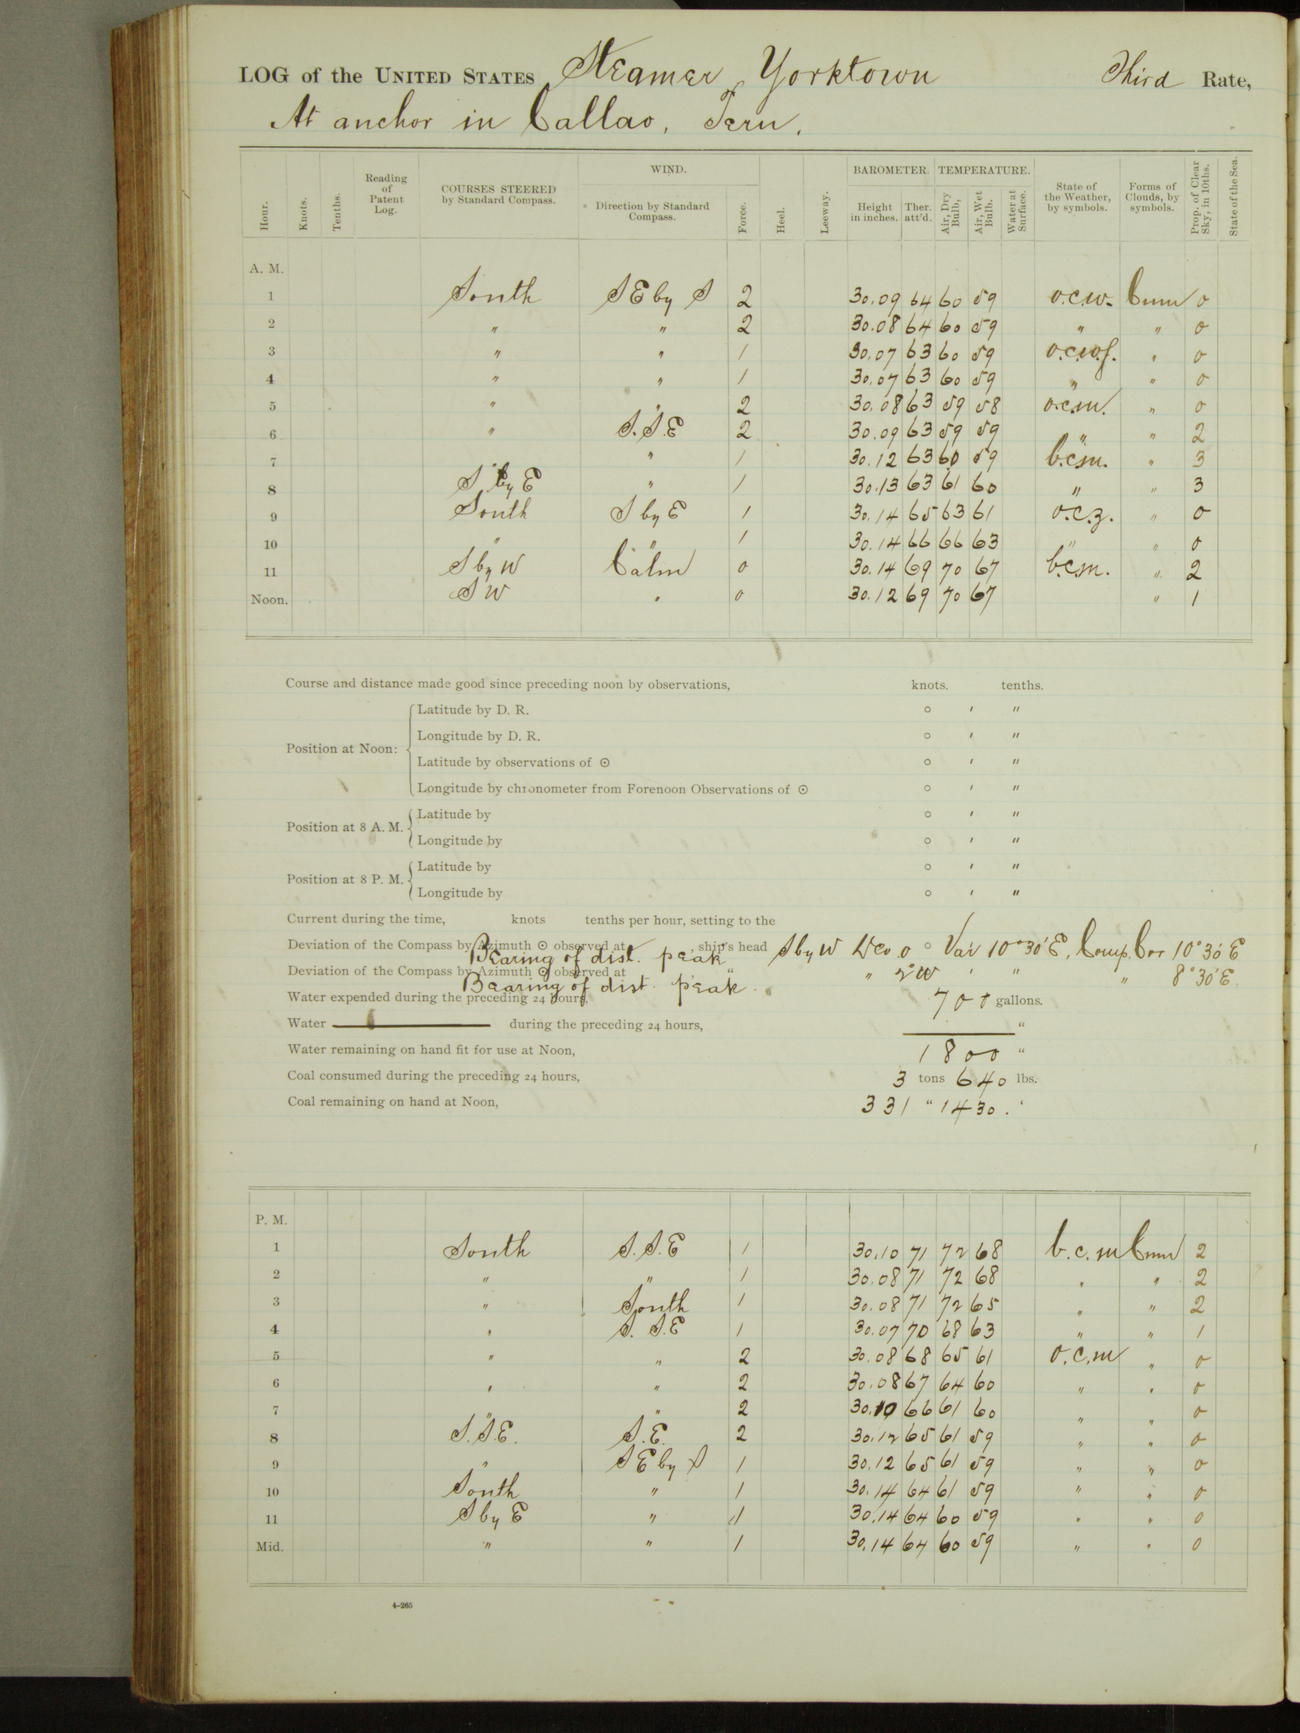 LOG of the UNITED STATES Steamer Yorktown Third Rate,
At anchor in Callao, Peru.
Hour. Knots. Tenths. Reading of Patent Log. COURSES STEERED by Standard Compass. WIND. Direction by Standard Compass. Force. Heel. Leeway. BAROMETER. Height in inches. Ther. att'd. TEMPERATURE. Air, Dry Bulb, Air, Wet Bulb. Water at Surface. State of the Weather, by symbols. Forms of Clouds, by symbols. Prop. of Clear Sky, in 10ths. State of the Sea.
A. M.
1 South SE by S 2 30.09 64 60 59 o.c.w. Cum 0
2 " " 2 30.08 64 60 59 " " 0
3 " " 1 30.07 63 60 59 o.c.w.f. " 0
4 " " 1 30.07 63 60 59 " " 0
5 " " 2 30.08 63 59 58 o.c.m. " 0
6 " S.S.E 2 30.09 63 59 59 " " 2
7 " 1 30.12 63 60 59 b.c.m. " 3
8 S by E " 1 30.13 63 61 60 " " 3
9 South S by E 1 30.14 65 63 61 o.c.z. " 0
10 " " 1 30.14 66 66 63 " " 0
11 S by W Calm 0 30.14 69 70 67 b.c.m. " 2
Noon. SW " 0 30.12 69 70 67 " 1
Course and distance made good since preceding noon by observations, knots. tenths.
Position at Noon:
Latitude by D. R. ° ′ ″
Longitude by D. R. ° ′ ″
Latitude by observations of ☉ ° ′ ″
Longitude by chronometer from Forenoon Observations of ☉ ° ′ ″
Position at 8 A. M.
Latitude by ° ′ ″
Longitude by ° ′ ″
Position at 8 P. M.
Latitude by ° ′ ″
Longitude by ° ′ ″
Current during the time, knots tenths per hour, setting to the
Deviation of the Compass by Azimuth ☉ observed at , ship's head S by W Dev 0 ° Var 10°30′E, Comp. Cor 10°30′E
Bearing of dist. peak
Deviation of the Compass by Azimuth ☉ observed at " " 2°W ′ ″ " 8°30′E.
Bearing of dist. peak.
Water expended during the preceding 24 hours, 700 gallons.
Water during the preceding 24 hours, "
Water remaining on hand fit for use at Noon, 1800 "
Coal consumed during the preceding 24 hours, 3 tons 640 lbs.
Coal remaining on hand at Noon, 331 " 1430. "
P. M.
1 South S.S.E 1 30.10 71 72 68 b.c.m Cum 2
2 " " 1 30.08 71 72 68 " " 2
3 " South 1 30.08 71 72 65 " " 2
4 " S. S.E 1 30.07 70 68 63 " " 1
5 " " 2 30.08 68 65 61 o.c.m " 0
6 " " 2 30.08 67 64 60 " " 0
7 " " 2 30.10 66 61 60 " " 0
8 S.S.E. S.E. 2 30.12 65 61 59 " " 0
9 " SE by S 1 30.12 65 61 59 " " 0
10 South " 1 30.14 64 61 59 " " 0
11 S by E " 1 30.14 64 60 59 " " 0
Mid. " " 1 30.14 64 60 59 " " 0
4-265